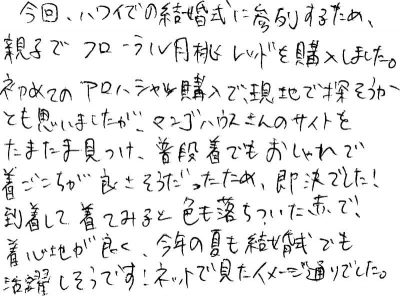 今回、ハワイでの結婚式に参列するため、
親子でフローラル月桃レッドを購入しました。
初めてのアロハシャツ購入で、現地で探そうか
とも思いましたが、マンゴハウスさんのサイトを
たまたま見つけ、普段着でもおしゃれで
着ごこちが良さそうだったため、即決でした!
到着して着てみると色も落ちついた赤で!
着心地が良く、今年の夏も結婚式でも
活躍しそうです!ネットで見たイメージ通りでした。